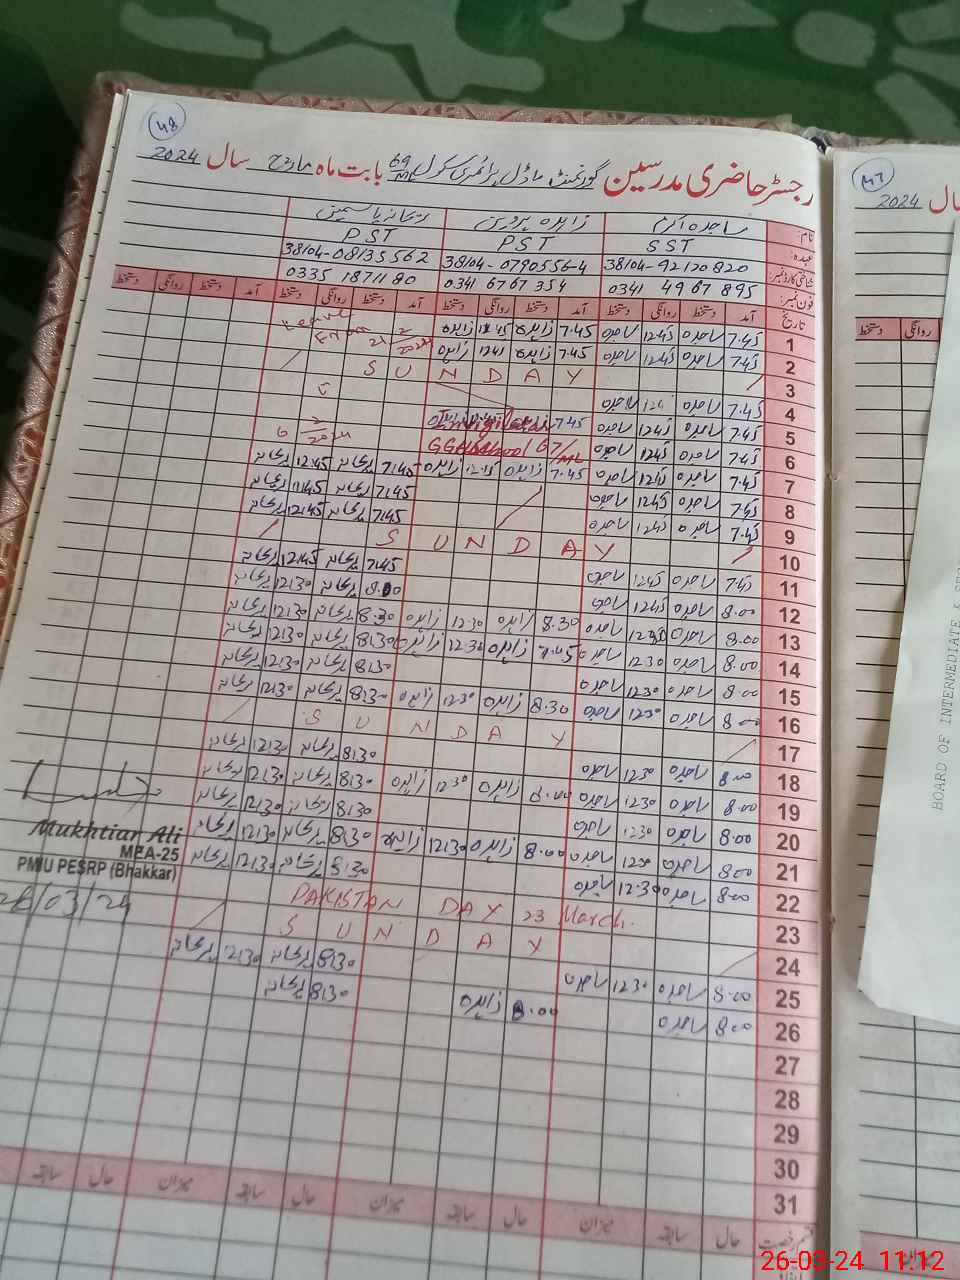 48
رجسٹر حاضری مدرسین گورنمنٹ ماڈل پرائمری سکول 69/ML بابت ماہ مارچ سال 2024
نام: ساجدہ اکرم زاہدہ پروین ریحانہ یاسمین
عہدہ: SST PST PST
شناختی کارڈ نمبر: 38104-92120820 38104-0790556-4 38104-08135562
فون نمبر: 0341 4967895 0341 6767354 0335 1871180
تاریخ آمد دستخط روانگی دستخط آمد دستخط روانگی دستخط آمد دستخط روانگی دستخط آمد روانگی دستخط
1 7.45 ساجدہ 12.45 ساجدہ 7.45 زاہدہ 12.45 زاہدہ Leave
2 7.45 ساجدہ 12.45 ساجدہ 7.45 زاہدہ زاہدہ From
3 SUNDAY
4 7.45 ساجدہ ساجدہ
5 7.45 ساجدہ 12.45 ساجدہ 7.45
6 7.45 ساجدہ 12.45 ساجدہ 67/ML
7 7.45 ساجدہ 12.45 ساجدہ 7.45 زاہدہ 12.45 زاہدہ 7.45 ریحانہ 12.45 ریحانہ
8 7.45 ساجدہ 12.45 ساجدہ 7.45 ریحانہ 11.45 ریحانہ
9 7.45 ساجدہ 12.45 ساجدہ 7.45 ریحانہ 12.45 ریحانہ
10 SUNDAY
11 7.45 ساجدہ 12.45 ساجدہ 7.45 ریحانہ 12.45 ریحانہ
12 8.00 ساجدہ 12.45 ساجدہ 8.00 ریحانہ 12.30 ریحانہ
13 8.00 ساجدہ 12.30 ساجدہ 8.30 زاہدہ 12.30 زاہدہ 8.30 ریحانہ 12.30 ریحانہ
14 8.00 ساجدہ 12.30 ساجدہ 7.45 زاہدہ 12.30 زاہدہ 8.30 ریحانہ 12.30 ریحانہ
15 8.00 ساجدہ 12.30 ساجدہ 8.30 ریحانہ 12.30 ریحانہ
16 8.00 ساجدہ 12.30 ساجدہ 8.30 زاہدہ 12.30 زاہدہ 8.30 ریحانہ 12.30 ریحانہ
17 SUNDAY
18 8.00 ساجدہ 12.30 ساجدہ 8.30 ریحانہ 12.30 ریحانہ
19 8.00 ساجدہ 12.30 ساجدہ 8.00 زاہدہ 12.30 زاہدہ 8.30 ریحانہ 12.30 ریحانہ
20 8.00 ساجدہ 12.30 ساجدہ 8.30 ریحانہ 12.30 ریحانہ
21 8.00 ساجدہ ساجدہ 8.00 زاہدہ 12.30 زاہدہ 8.30 ریحانہ 12.30 ریحانہ
22 8.00 ساجدہ 12.30 ساجدہ 8.30 ریحانہ 12.30 ریحانہ
23 PAKISTAN DAY 23 March.
24 SUNDAY
25 8.00 ساجدہ 12.30 ساجدہ 8.30 ریحانہ 12.30 ریحانہ
26 8.00 ساجدہ 8.00 زاہدہ 8.30 ریحانہ
27
28
29
30
31
حال سابقہ میزان حال سابقہ میزان حال سابقہ میزان حال سابقہ
قسم رخصت
Mukhtiar Ali
MEA-25
PMIU PESRP (Bhakkar)
26/03/24
47
سال 2024
روانگی دستخط
BOARD OF INTERMEDIATE &
26-03-24 11:12